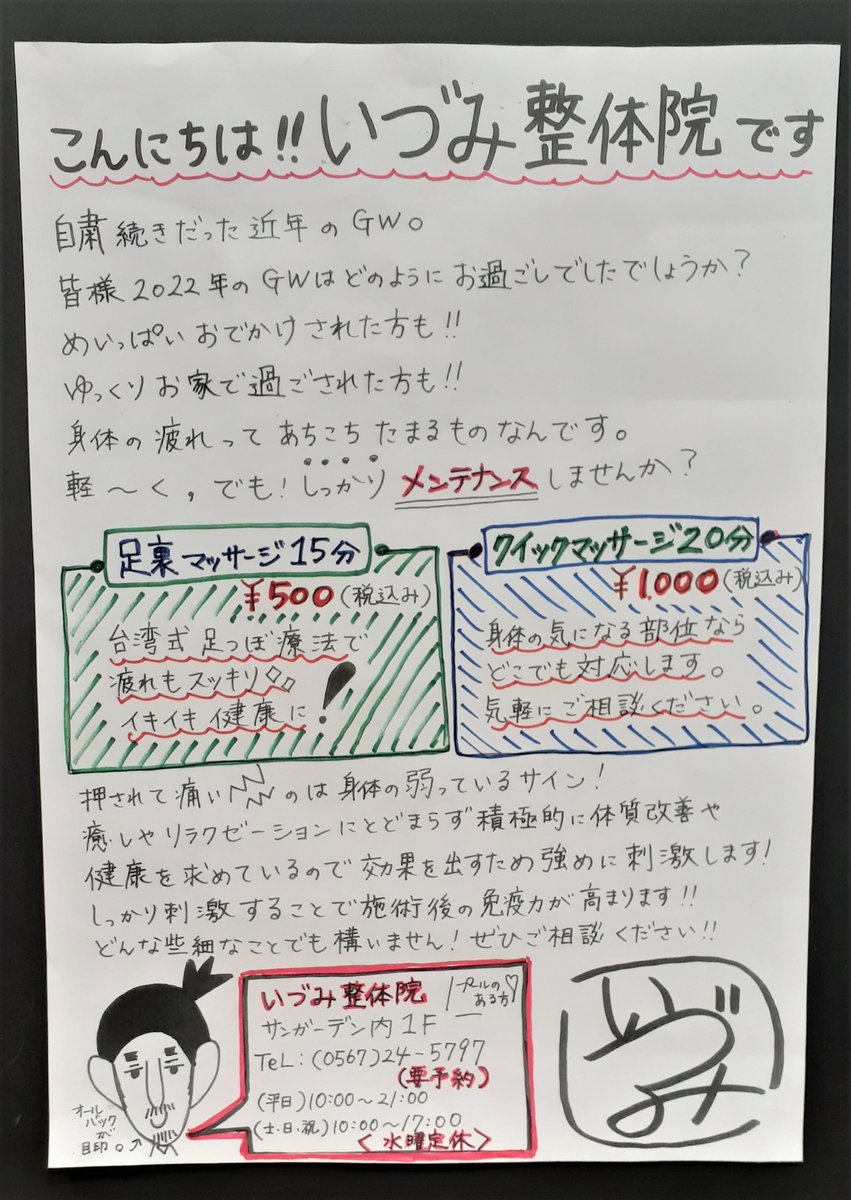 こんにちは!! いづみ整体院です
自粛続きだった近年のGW。
皆様2022年のGWはどのようにお過ごしでしたでしょうか?
めいっぱいおでかけされた方も!!
ゆっくりお家で過ごされた方も!!
身体の疲れってあちこちたまるものなんです。
軽〜く,でも!しっかりメンテナンスしませんか?
足裏マッサージ15分
¥500(税込み)
台湾式足つぼ療法で
疲れもスッキリ◇◇
イキイキ健康に!
クイックマッサージ20分
¥1,000(税込み)
身体の気になる部位なら
どこでも対応します。
気軽にご相談ください。
押されて痛いのは身体の弱っているサイン!
癒しやリラクゼーションにとどまらず積極的に体質改善や
健康を求めているので効果を出すため強めに刺激します!
しっかり刺激することで施術後の免疫力が高まります!!
どんな些細なことでも構いません!ぜひご相談ください!!
オール
バック
が
目印。→
いづみ整体院
プールの
ある方♡
サンガーデン内1F
TeL:(0567)24-5797
(要予約)
(平日)10:00〜21:00
(土・日・祝)10:00〜17:00
<水曜定休>
いづみ